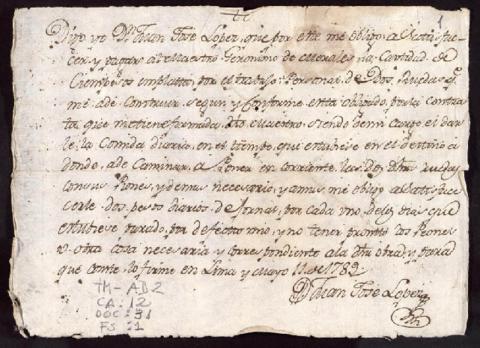 1
Digo yo Dn. Juan Jose Lopez, que por este me obligo a Satisfa-
cer, y pagar al Maestro Geronimo de Morales na Cantidad de
Cien pesos en plata, por el travajo Personal de Dos Ruedas q.
me ade Construir segun y Conforme esta obligado, por la contra-
ta que me tiene firmada dho Maestro, siendo de mi cargo el dar
le la Comida diaria, en el tiempo, que estubiese en el destino a
donde, ade Caminar, a Poner en corriente las dos dhas ruedas
con sus Piones, y demas necesario, y a mas, me obligo a Satisface
cerle dos pesos diarios de Jornal, por cada uno, de los dias que
estubiese parado, por defecto mio, y no tener prontos los Peones
u otra cosa necesaria y correspondiente a la dha obra, y para
que conste lo firme en Lima y Mayo 11 de 1789
Dn. Juan Jose Lopez
TH-AD2
CA: 12
DOC: 31
FS: 1